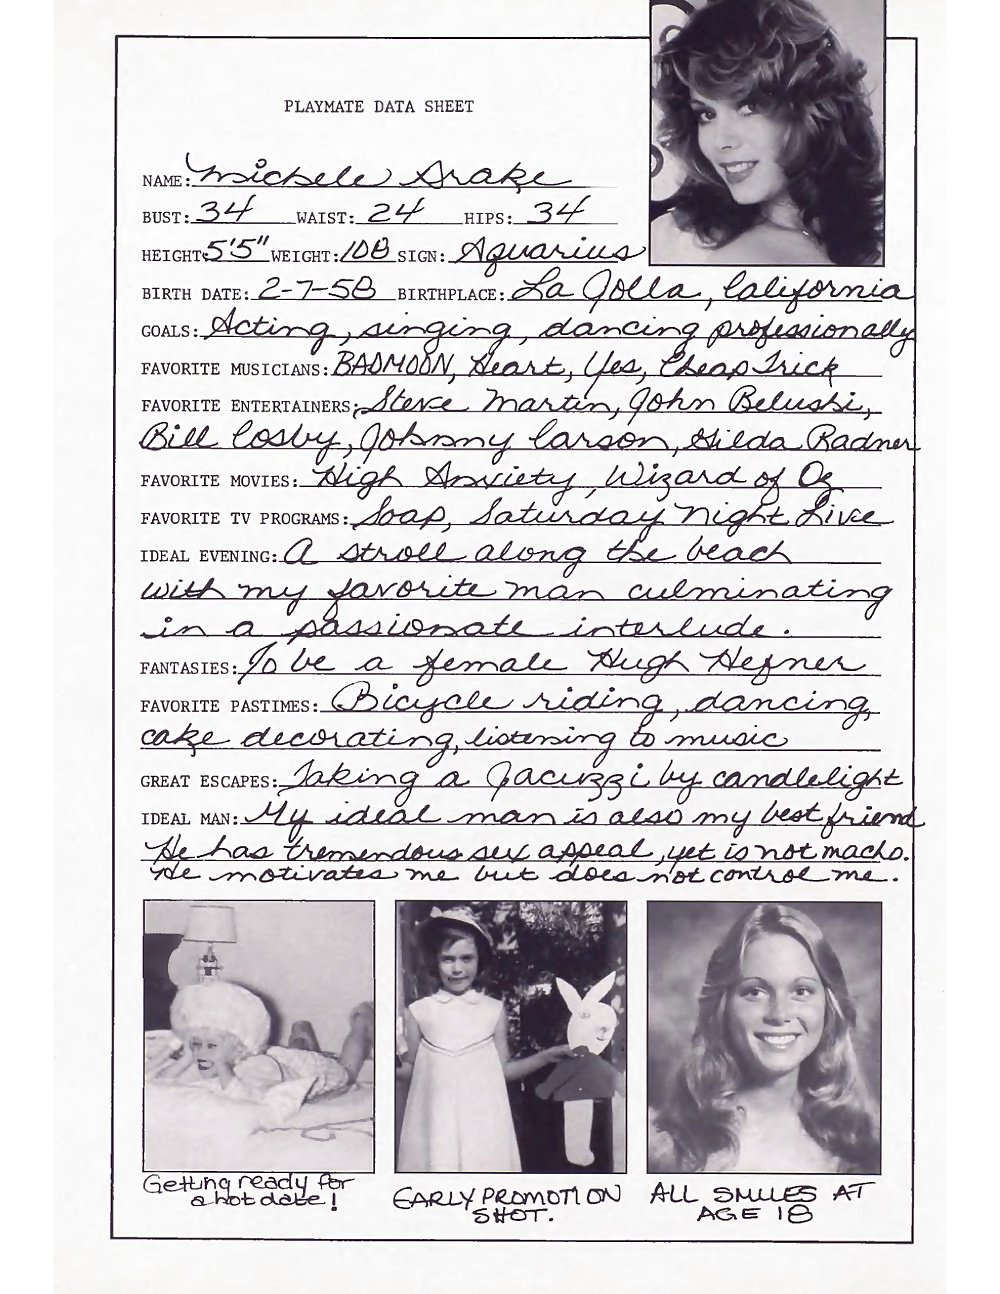 PLAYMATE DATA SHEET
NAME: Michele Drake
BUST: 34 WAIST: 24 HIPS: 34
HEIGHT: 5'5" WEIGHT: 108 SIGN: Aquarius
BIRTH DATE: 2-7-58 BIRTHPLACE: La Jolla, California
GOALS: Acting, singing, dancing professionally
FAVORITE MUSICIANS: BADMOON, Heart, Yes, Cheap Trick
FAVORITE ENTERTAINERS: Steve Martin, John Belushi,
Bill Cosby, Johnny Carson, Gilda Radner
FAVORITE MOVIES: High Anxiety, Wizard of Oz
FAVORITE TV PROGRAMS: Soap, Saturday Night Live
IDEAL EVENING: A stroll along the beach
with my favorite man culminating
in a passionate interlude.
FANTASIES: To be a female Hugh Hefner
FAVORITE PASTIMES: Bicycle riding, dancing,
cake decorating, listening to music
GREAT ESCAPES: Taking a Jacuzzi by candlelight
IDEAL MAN: My ideal man is also my best friend
He has tremendous sex appeal, yet is not macho.
He motivates me but does not control me.
Getting ready for
a hot date!
EARLY PROMOTION
SHOT.
ALL SMILES AT
AGE 18